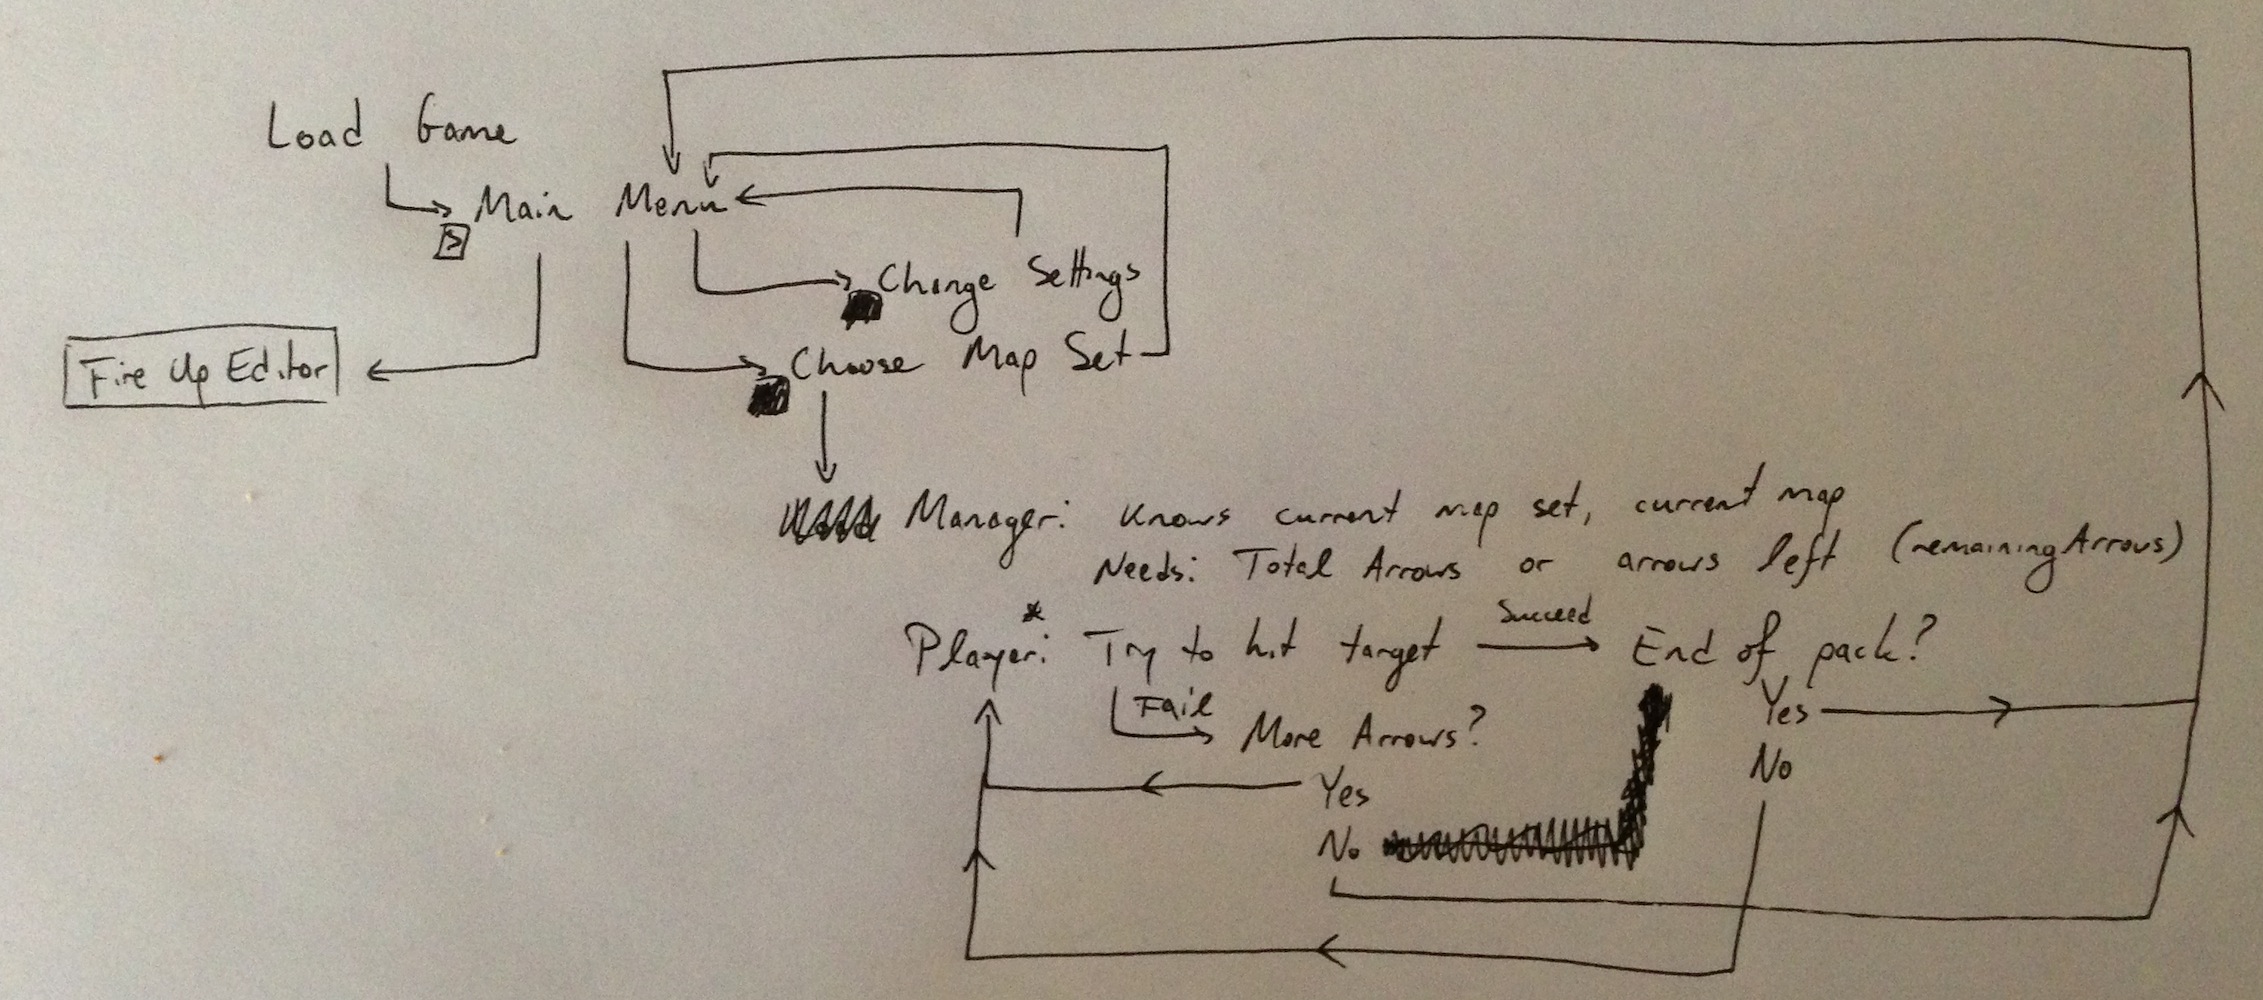 Load Game
Main Menu
Change Settings
Fire Up Editor
Choose Map Set
Manager: Knows current map set, current map
Needs: Total Arrows or arrows left (remainingArrows)
Player*: Try to hit target Succeed End of pack?
Fail
More Arrows?
Yes
No
Yes
No